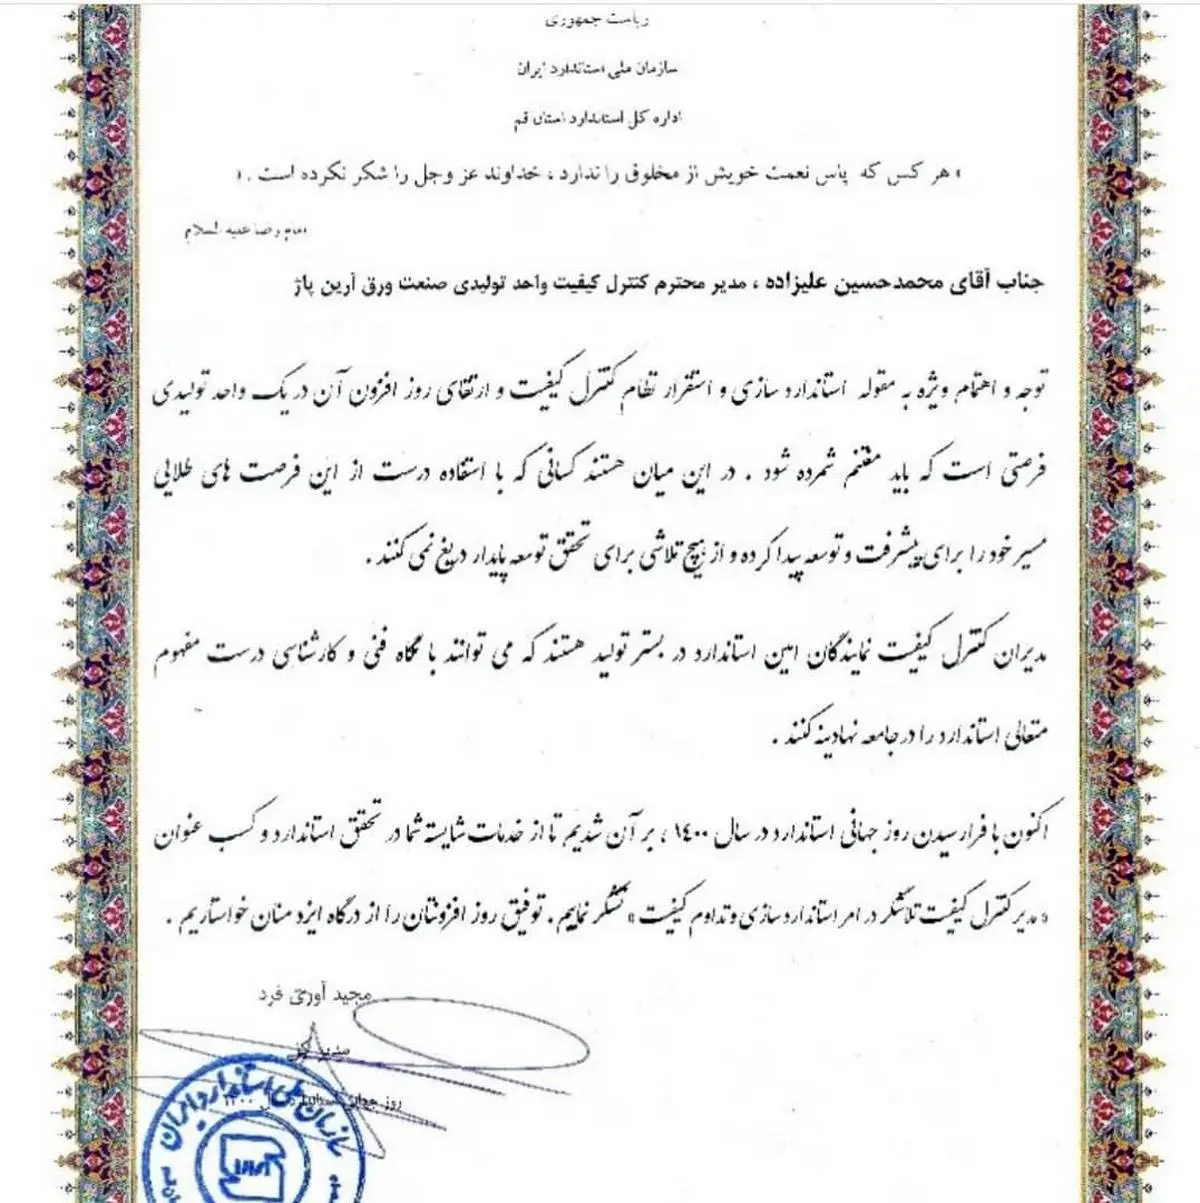 ریاست جمهوری
سازمان ملی استاندارد ایران
اداره کل استاندارد استان قم
« هر کس که پاس نعمت خویش از مخلوق را ندارد ، خداوند عز وجل را شکر نکرده است . »
امام رضا علیه السلام
جناب آقای محمدحسین علیزاده ، مدیر محترم کنترل کیفیت واحد تولیدی صنعت ورق آرین پاژ
توجه و اهتمام ویژه به مقوله استاندارد سازی و استقرار نظام کنترل کیفیت و ارتقای روز افزون آن در یک واحد تولیدی
فرصتی است که باید مغتنم شمرده شود . در این میان هستند کسانی که با استفاده درست از این فرصت های طلایی
مسیر خود را برای پیشرفت و توسعه پیدا کرده و از هیچ تلاشی برای تحقق توسعه پایدار دریغ نمی کنند .
مدیران کنترل کیفیت نمایندگان امین استاندارد در بستر تولید هستند که می توانند با نگاه فنی و کارشناسی درست مفهوم
متعالی استاندارد را در جامعه نهادینه کنند .
اکنون با فرارسیدن روز جهانی استاندارد در سال ۱۴۰۰ ، بر آن شدیم تا از خدمات شایسته شما در تحقق استاندارد و کسب عنوان
« مدیر کنترل کیفیت تلاشگر در امر استاندارد سازی و تداوم کیفیت » تشکر نماییم . توفیق روز افزونتان را از درگاه ایزد منان خواستاریم .
مجید آوری فرد
مدیر کل
روز جهانی استاندارد سال ۱۴۰۰
سازمان ملی استاندارد ایران